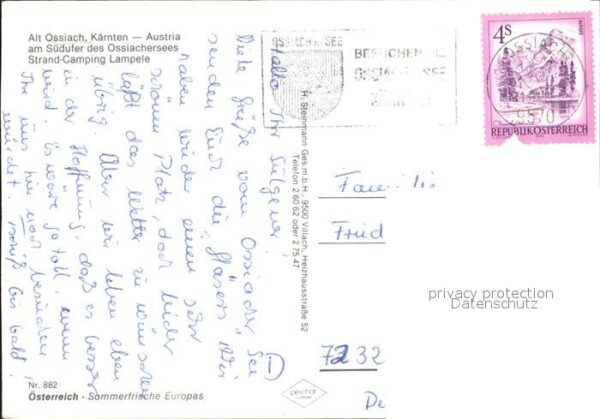 Alt Ossiach, Kärnten — Austria
am Südufer des Ossiachersees
Strand-Camping Lampele
Hallo Ihr Sulgener!
Viele Grüße vom Ossiacher See
senden Euch die „Gläsers". Wir
haben wieder einen sehr
schönen Platz, doch leider
läßt das Wetter zu wünschen
übrig. Aber wir leben eben
in der Hoffnung, daß es besser
wird. Es wäre so toll, wenn
Ihr uns hier noch besuchen
würdet. Tschüß bis bald!
H. Steinmann Ges.m.b.H., 9500 Villach, Heizhausstraße 52
Telefon 2 60 62 oder 2 75 47
OSSIACH SEE
BESUCHEN
OSSIACH SEE
OSSIACH
9570
4S
REPUBLIK ÖSTERREICH
Familie
Fried
7232
De
privacy protection
Datenschutz
Nr. 882
Österreich - Sommerfrische Europas